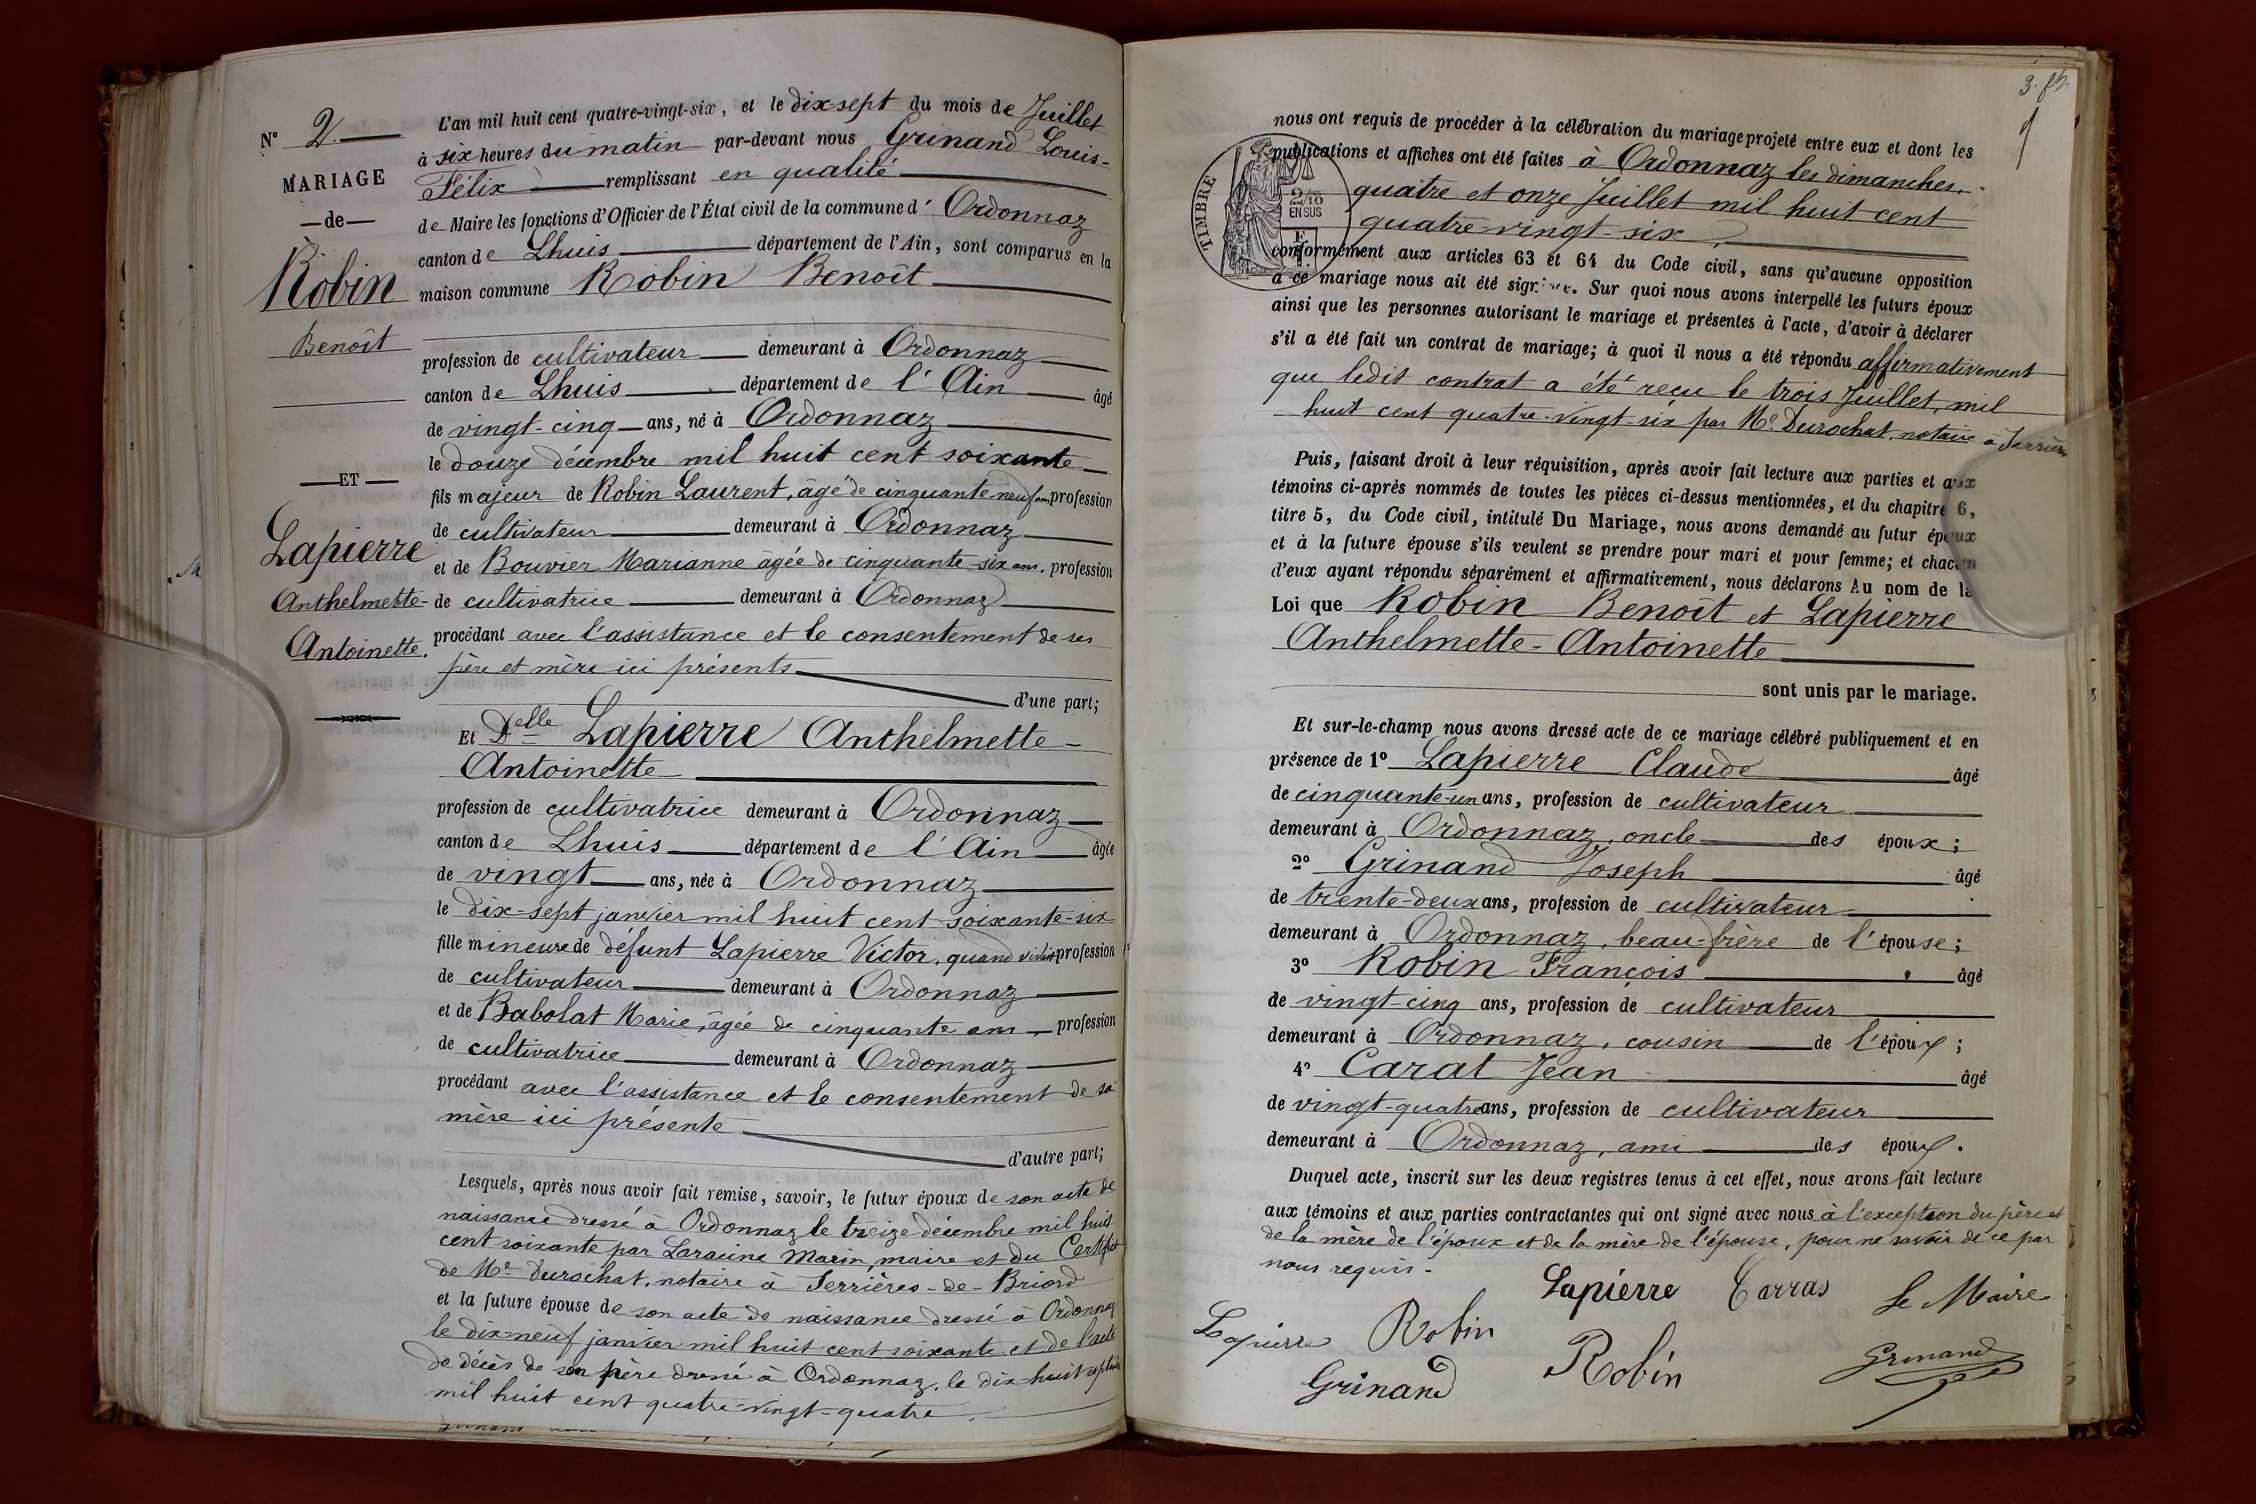 N° 2
MARIAGE
— de —
Robin
Benoît
— ET —
Lapierre
Anthelmette-
Antoinette.
L'an mil huit cent quatre-vingt-six, et le dix-sept du mois de Juillet
à six heures du matin par-devant nous Grinand Louis-
Félix remplissant en qualité
de Maire les fonctions d'Officier de l'État civil de la commune d' Ordonnaz
canton de Lhuis département de l'Ain, sont comparus en la
maison commune Robin Benoît
profession de cultivateur demeurant à Ordonnaz
canton de Lhuis département de l'Ain âgé
de vingt-cinq ans, né à Ordonnaz
le douze décembre mil huit cent soixante
fils majeur de Robin Laurent, âgé de cinquante neuf ans profession
de cultivateur demeurant à Ordonnaz
et de Bouvier Marianne âgée de cinquante-six ans. profession
de cultivatrice demeurant à Ordonnaz
procédant avec l'assistance et le consentement de ses
père et mère ici présents
d'une part;
Et Delle Lapierre Anthelmette-
Antoinette
profession de cultivatrice demeurant à Ordonnaz
canton de Lhuis département de l'Ain âgée
de vingt ans, née à Ordonnaz
le dix-sept janvier mil huit cent soixante-six
fille mineure de défunt Lapierre Victor, quand vivait profession
de cultivateur demeurant à Ordonnaz
et de Babolat Marie, âgée de cinquante ans profession
de cultivatrice demeurant à Ordonnaz
procédant avec l'assistance et le consentement de sa
mère ici présente
d'autre part;
Lesquels, après nous avoir fait remise, savoir, le futur époux de son acte de
naissance dressé à Ordonnaz le treize décembre mil huit
cent soixante par Laracine Marin, maire et du Certificat
de Me Durochat, notaire à Serrières-de-Briord
et la future épouse de son acte de naissance dressé à Ordonnaz
le dix-neuf janvier mil huit cent soixante et de l'acte
de décès de son père dressé à Ordonnaz, le dix-huit septembre
mil huit cent quatre-vingt-quatre.
nous ont requis de procéder à la célébration du mariage projeté entre eux et dont les
publications et affiches ont été faites à Ordonnaz les dimanches,
quatre et onze Juillet mil huit cent
quatre-vingt-six,
TIMBRE
2/10
EN SUS
conformément aux articles 63 et 64 du Code civil, sans qu'aucune opposition
à ce mariage nous ait été signifiée. Sur quoi nous avons interpellé les futurs époux
ainsi que les personnes autorisant le mariage et présentes à l'acte, d'avoir à déclarer
s'il a été fait un contrat de mariage; à quoi il nous a été répondu affirmativement
que ledit contrat a été reçu le trois Juillet, mil
huit cent quatre-vingt-six par Me Durochat, notaire à Serrières
Puis, faisant droit à leur réquisition, après avoir fait lecture aux parties et aux
témoins ci-après nommés de toutes les pièces ci-dessus mentionnées, et du chapitre 6,
titre 5, du Code civil, intitulé Du Mariage, nous avons demandé au futur époux
et à la future épouse s'ils veulent se prendre pour mari et pour femme; et chacun
d'eux ayant répondu séparément et affirmativement, nous déclarons Au nom de la
Loi que Robin Benoît et Lapierre
Anthelmette-Antoinette
sont unis par le mariage.
Et sur-le-champ nous avons dressé acte de ce mariage célébré publiquement et en
présence de 1° Lapierre Claude âgé
de cinquante-un ans, profession de cultivateur
demeurant à Ordonnaz, oncle des époux;
2° Grinand Joseph âgé
de trente-deux ans, profession de cultivateur
demeurant à Ordonnaz, beau-frère de l'épouse;
3° Robin François âgé
de vingt-cinq ans, profession de cultivateur
demeurant à Ordonnaz, cousin de l'époux;
4° Carat Jean âgé
de vingt-quatre ans, profession de cultivateur
demeurant à Ordonnaz, ami des époux.
Duquel acte, inscrit sur les deux registres tenus à cet effet, nous avons fait lecture
aux témoins et aux parties contractantes qui ont signé avec nous à l'exception du père et
de la mère de l'époux et de la mère de l'épouse, pour ne savoir de ce par
nous requis.
Lapierre Carras Le Maire
Lapierre Robin
Grinand Robin Grinand